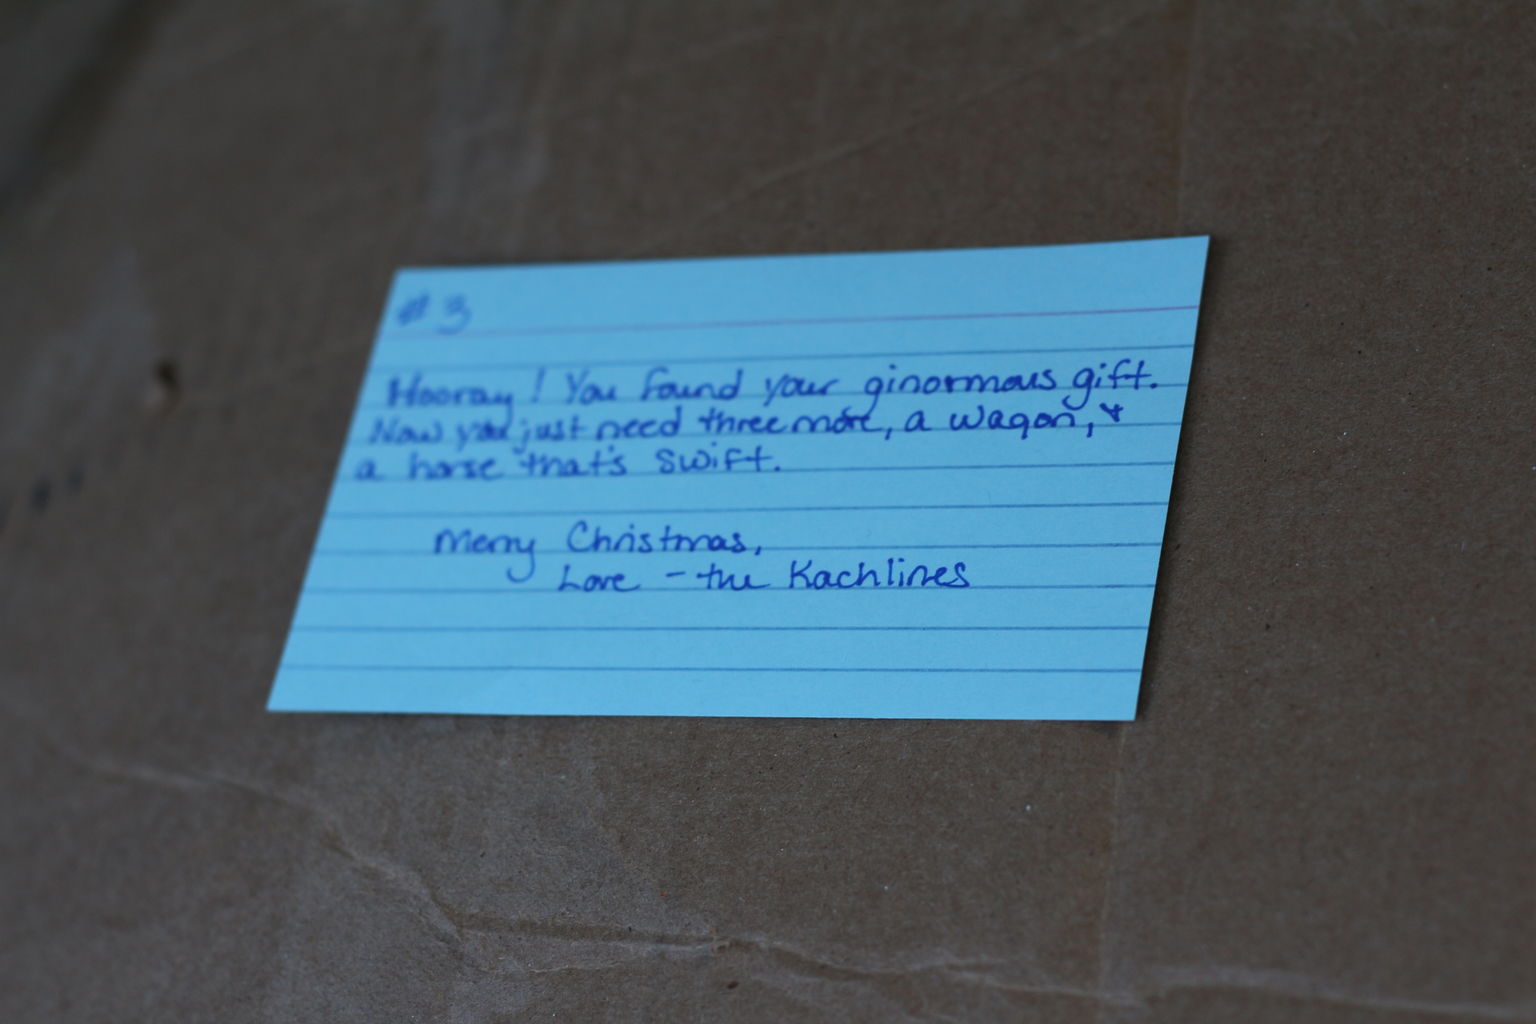 #3
Hooray! You found your ginormous gift.
Now you just need three more, a wagon, &
a horse that's swift.
Merry Christmas,
Love - the Kachlines